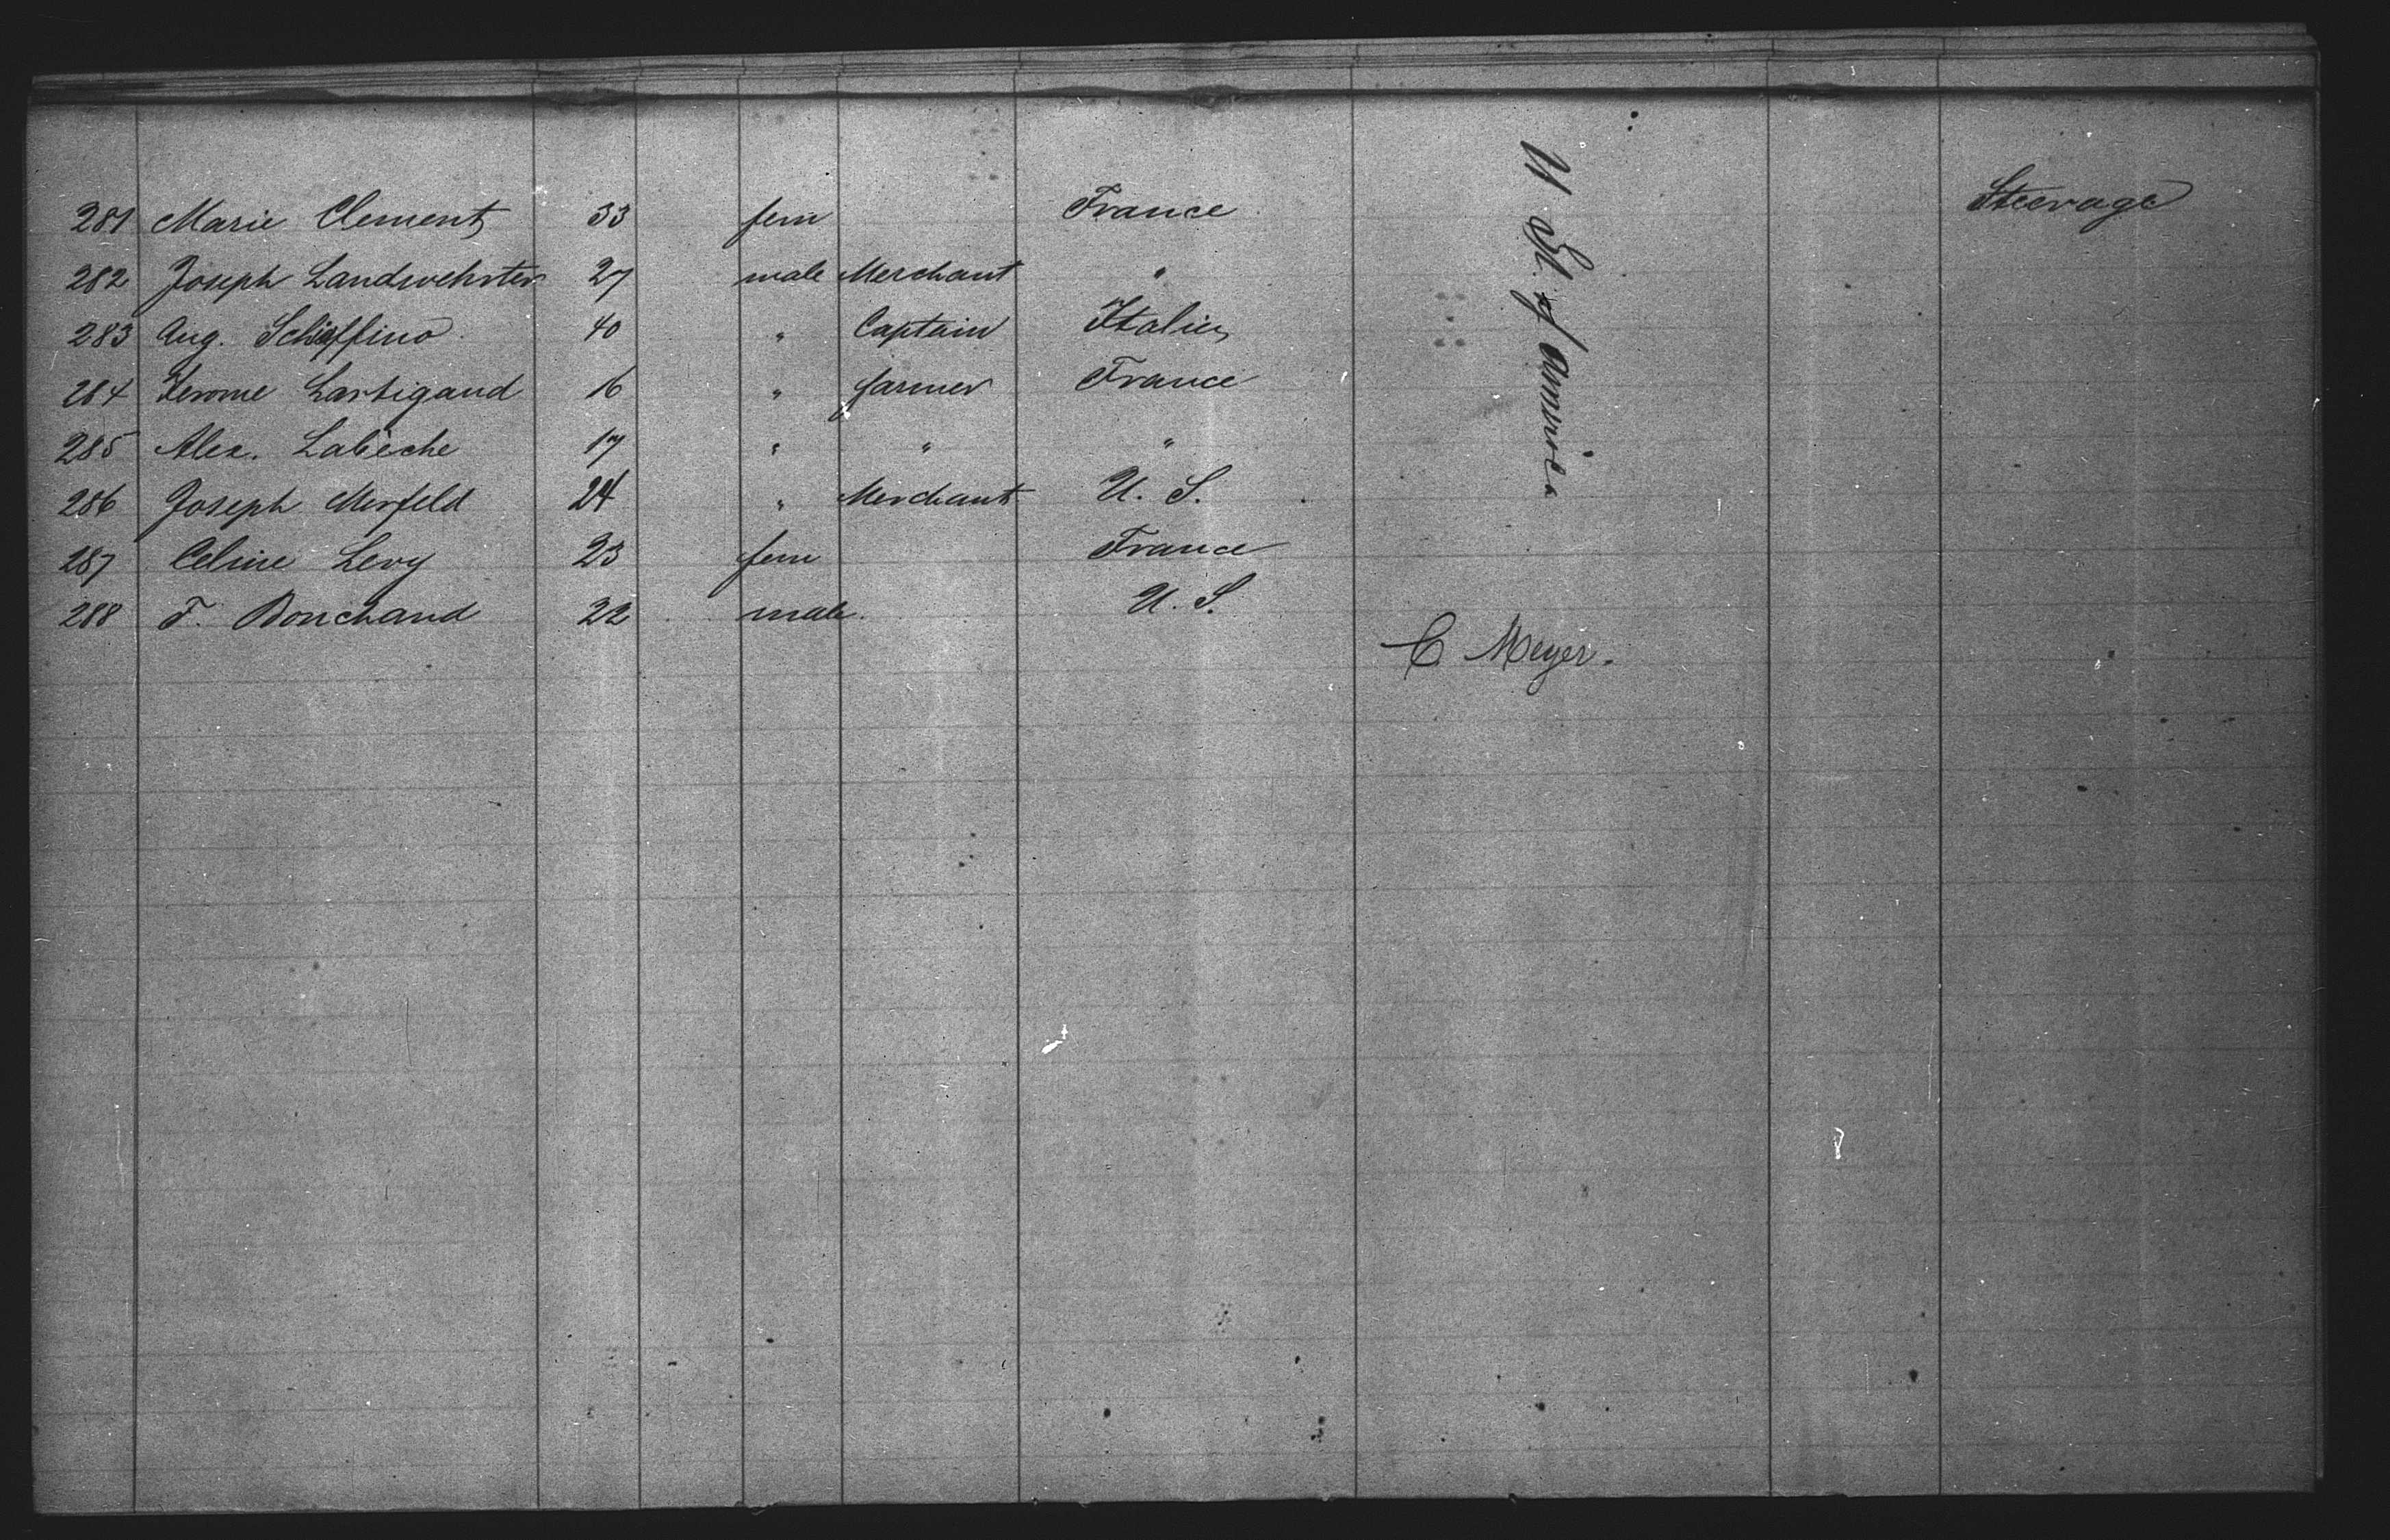 281 Marie Clement 33 fem France Steerage
282 Joseph Landwehrter 27 male Merchant "
283 Aug. Schiaffino 40 " Captain Italien
284 Jerome Lartigaud 16 " farmer France
285 Alex. Labèche 17 " " "
286 Joseph Merfeld 24 " Merchant U. S.
287 Celine Levy 23 fem France
288 F. Bouchaud 22 male. U. S.
U St. of America
C Meyer.